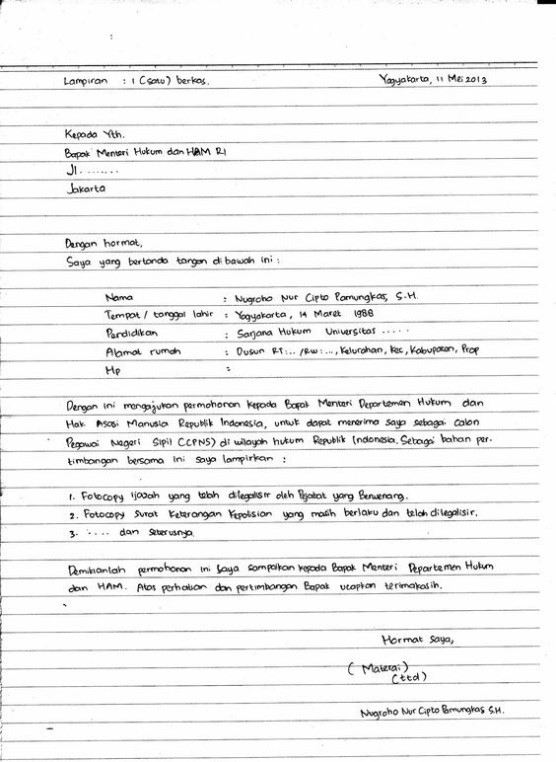 Lampiran : 1 (satu) berkas. Yogyakarta, 11 Mei 2013
Kepada Yth.
Bapak Menteri Hukum dan HAM RI
Jl. ........
Jakarta
Dengan hormat,
Saya yang bertanda tangan di bawah ini :
Nama : Nugroho Nur Cipto Pamungkas, S.H.
Tempat / tanggal lahir : Yogyakarta, 14 Maret 1988
Pendidikan : Sarjana Hukum Universitas .....
Alamat rumah : Dusun RT:... /RW:..., Kelurahan, Kec, Kabupaten, Prop
Hp :
Dengan ini mengajukan permohonan kepada Bapak Menteri Departemen Hukum dan
Hak Asasi Manusia Republik Indonesia, untuk dapat menerima saya sebagai Calon
Pegawai Negeri Sipil (CPNS) di wilayah hukum Republik Indonesia. Sebagai bahan per-
timbangan bersama ini saya lampirkan :
1. Fotocopy ijasah yang telah dilegalisir oleh Pejabat yang Berwenang.
2. Fotocopy Surat Keterangan Kepolisian yang masih berlaku dan telah dilegalisir.
3. ..... dan seterusnya
Demikianlah permohonan ini saya sampaikan kepada Bapak Menteri Departemen Hukum
dan HAM. Atas perhatian dan pertimbangan Bapak ucapkan terimakasih.
Hormat saya,
( Materai )
(ttd)
Nugroho Nur Cipto Pamungkas S.H.